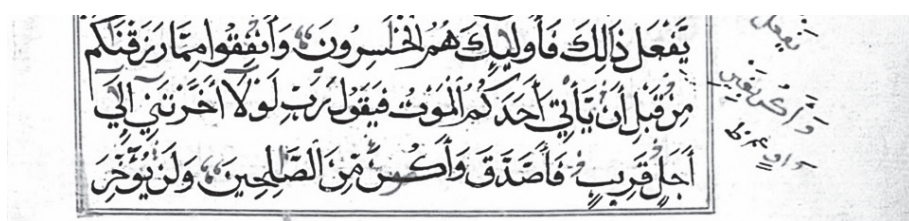 يَفْعَلْ ذَٰلِكَ فَأُولَٰئِكَ هُمُ الْخَٰسِرُونَ وَأَنْفِقُوا مِمَّا رَزَقْنَٰكُمْ
مِنْ قَبْلِ أَنْ يَأْتِيَ أَحَدَكُمُ الْمَوْتُ فَيَقُولَ رَبِّ لَوْلَا أَخَّرْتَنِي إِلَىٰ
أَجَلٍ قَرِيبٍ فَأَصَّدَّقَ وَأَكُنْ مِنَ الصَّٰلِحِينَ وَلَنْ يُؤَخِّرَ
يفعل